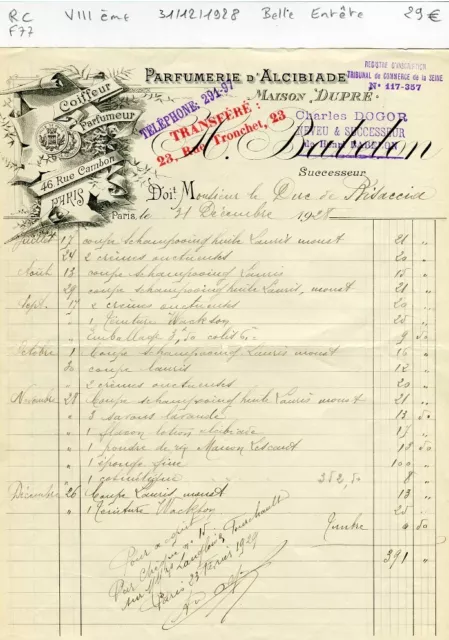 RC VIII ème 31/12/1928 Belle Entête 29 €
F77
PARFUMERIE D'ALCIBIADE
MAISON DUPRÉ
REGISTRE D'INSCRIPTION
TRIBUNAL DE COMMERCE DE LA SEINE
N° 117-357
Coiffeur
Parfumeur
46 Rue Cambon
PARIS
TÉLÉPHONE: 291-97
TRANSFÉRÉ :
23, Rue Tronchet, 23
Charles DOGOR
NEVEU & SUCCESSEUR
Successeur
Doit Monsieur le Duc de Bisaccia
Paris, le 31 Décembre 1928
Juillet 17 coupe schampooing huile Lauris monst 21 "
24 2 crèmes onctueuses 20 "
Août 13 coupe schampooing Lauris 15 "
29 coupe schampooing huile Lauris, monst 21 "
Sept. 17 2 crèmes onctueuses 20 "
" 1 Teinture Wackson 25 "
" Emballage 3,50 colis 6= 9 50
Octobre 1 Coupe schampooing Lauris monst 16 "
30 coupe Lauris 12 "
" 2 crèmes onctueuses 20 "
Novembre 28 Coupe schampooing huile Lauris monst 21 "
" 3 savons lavande 13 50
" 1 flacon lotion alcibiade 17 "
" 1 poudre de riz Manon Lescaut 13 50
" 1 éponge fine 100 "
" 1 352,50 8 "
Décembre 26 Coupe Lauris, monst 13 "
" 1 Teinture Wackson 25 "
Timbre 0 50
391 "
Pour acquit
Par chèque n° 15
sur
Paris 23 1929